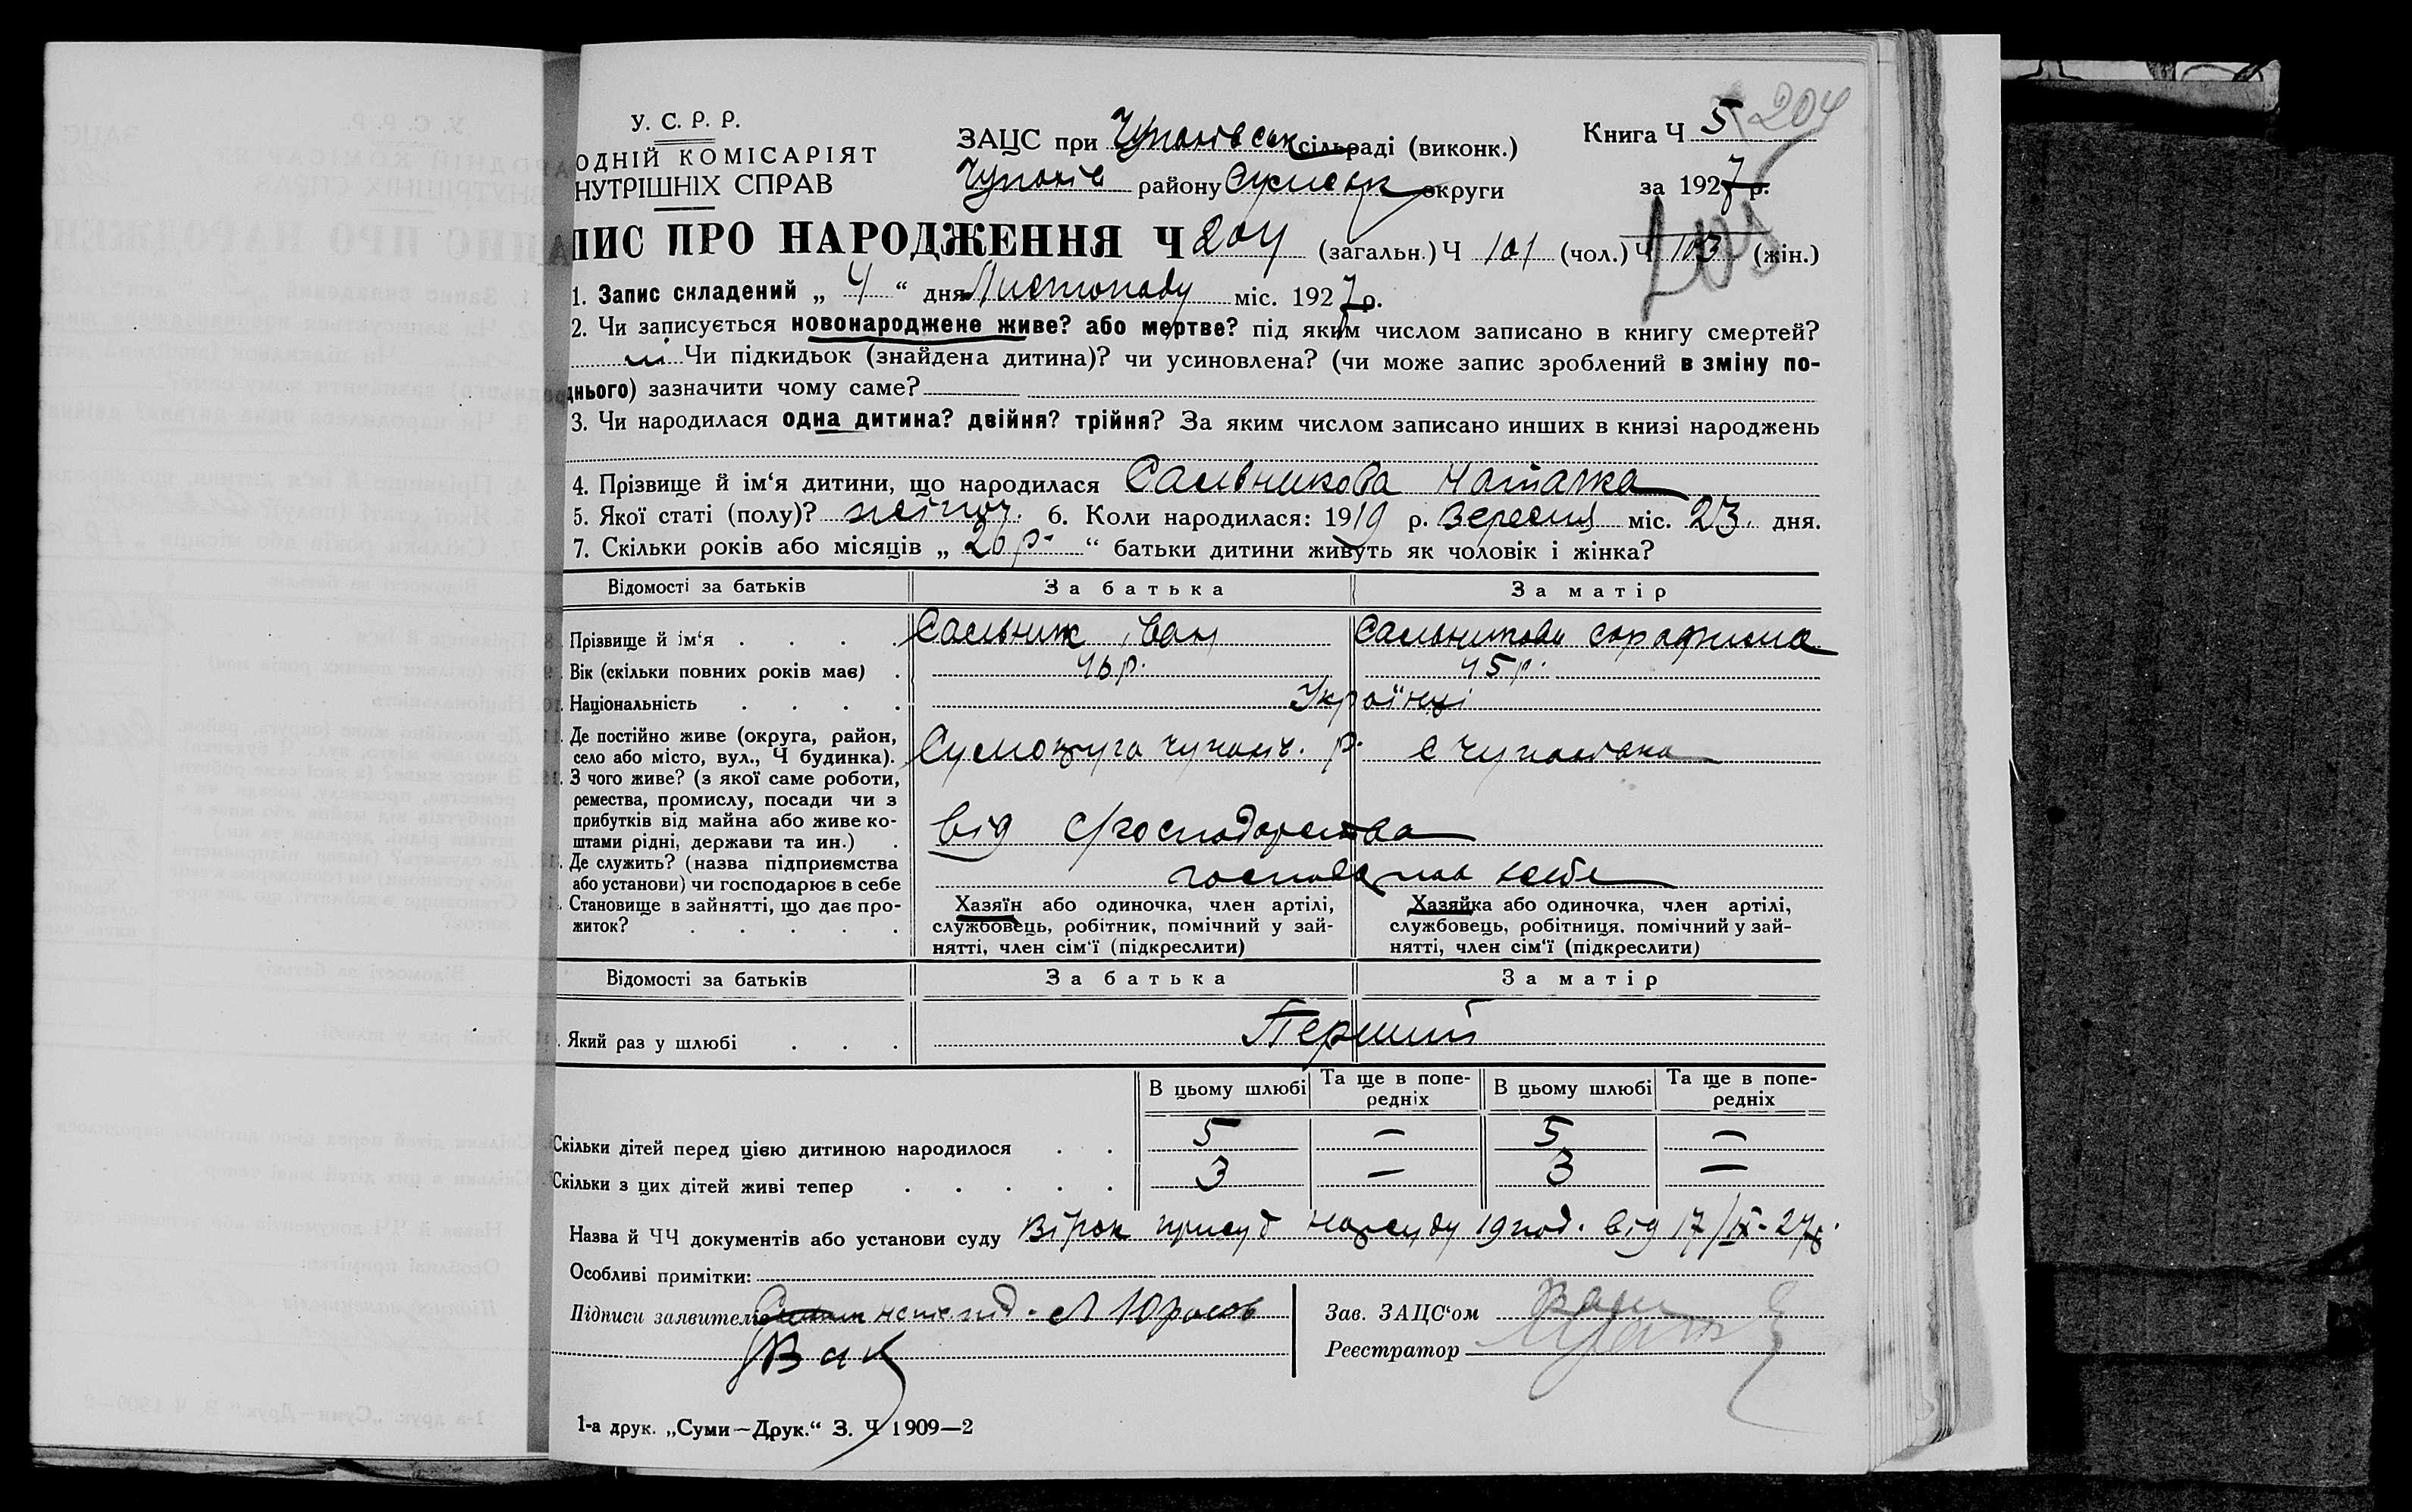 У. С. Р. Р.
ОДНІЙ КОМІСАРІЯТ
НУТРІШНІХ СПРАВ
ЗАЦС при сільраді (виконк.)
району округи
Книга Ч 5 204
за 1927 р.
ПИС ПРО НАРОДЖЕННЯ Ч 204 (загальн.) Ч 101 (чол.) Ч 103 (жін.)
1. Запис складений „ 4 “ дня Листопаду міс. 1927 р.
2. Чи записується новонароджене живе? або мертве? під яким числом записано в книгу смертей?
ні Чи підкидьок (знайдена дитина)? чи усиновлена? (чи може запис зроблений в зміну по-
днього) зазначити чому саме?
3. Чи народилася одна дитина? двійня? трійня? За яким числом записано инших в книзі народжень
4. Прізвище й ім‘я дитини, що народилася Сальникова Наталка
5. Якої статі (полу)? жіноч. 6. Коли народилася: 1919 р. Вересня міс. 23 дня.
7. Скільки років або місяців „ 26 р. “ батьки дитини живуть як чоловік і жінка?
Відомості за батьків За батька За матір
Прізвище й ім‘я Сальник Іван Сальникова
Вік (скільки повних років має) 46 р. 45 р.
Національність Українці
Де постійно живе (округа, район,
село або місто, вул., Ч будинка).
З чого живе? (з якої саме роботи,
ремества, промислу, посади чи з
прибутків від майна або живе ко-
штами рідні, держави та ин.)
від с/господарства
Де служить? (назва підприємства
або установи) чи господарює в себе
Становище в зайнятті, що дає про-
житок?
Хазяїн або одиночка, член артілі,
службовець, робітник, помічний у зай-
нятті, член сім‘ї (підкреслити)
Хазяйка або одиночка, член артілі,
службовець, робітниця, помічний у зай-
нятті, член сім‘ї (підкреслити)
Відомості за батьків За батька За матір
Який раз у шлюбі Перший
В цьому шлюбі Та ще в попе-
редніх В цьому шлюбі Та ще в попе-
редніх
Скільки дітей перед цією дитиною народилося 5 — 5 —
Скільки з цих дітей живі тепер 3 — 3 —
Назва й ЧЧ документів або установи суду від 17/IX-27р.
Особливі примітки:
Підписи заявителів
Зав. ЗАЦС‘ом
Реєстратор
1-а друк. „Суми—Друк.“ З. Ч 1909—2